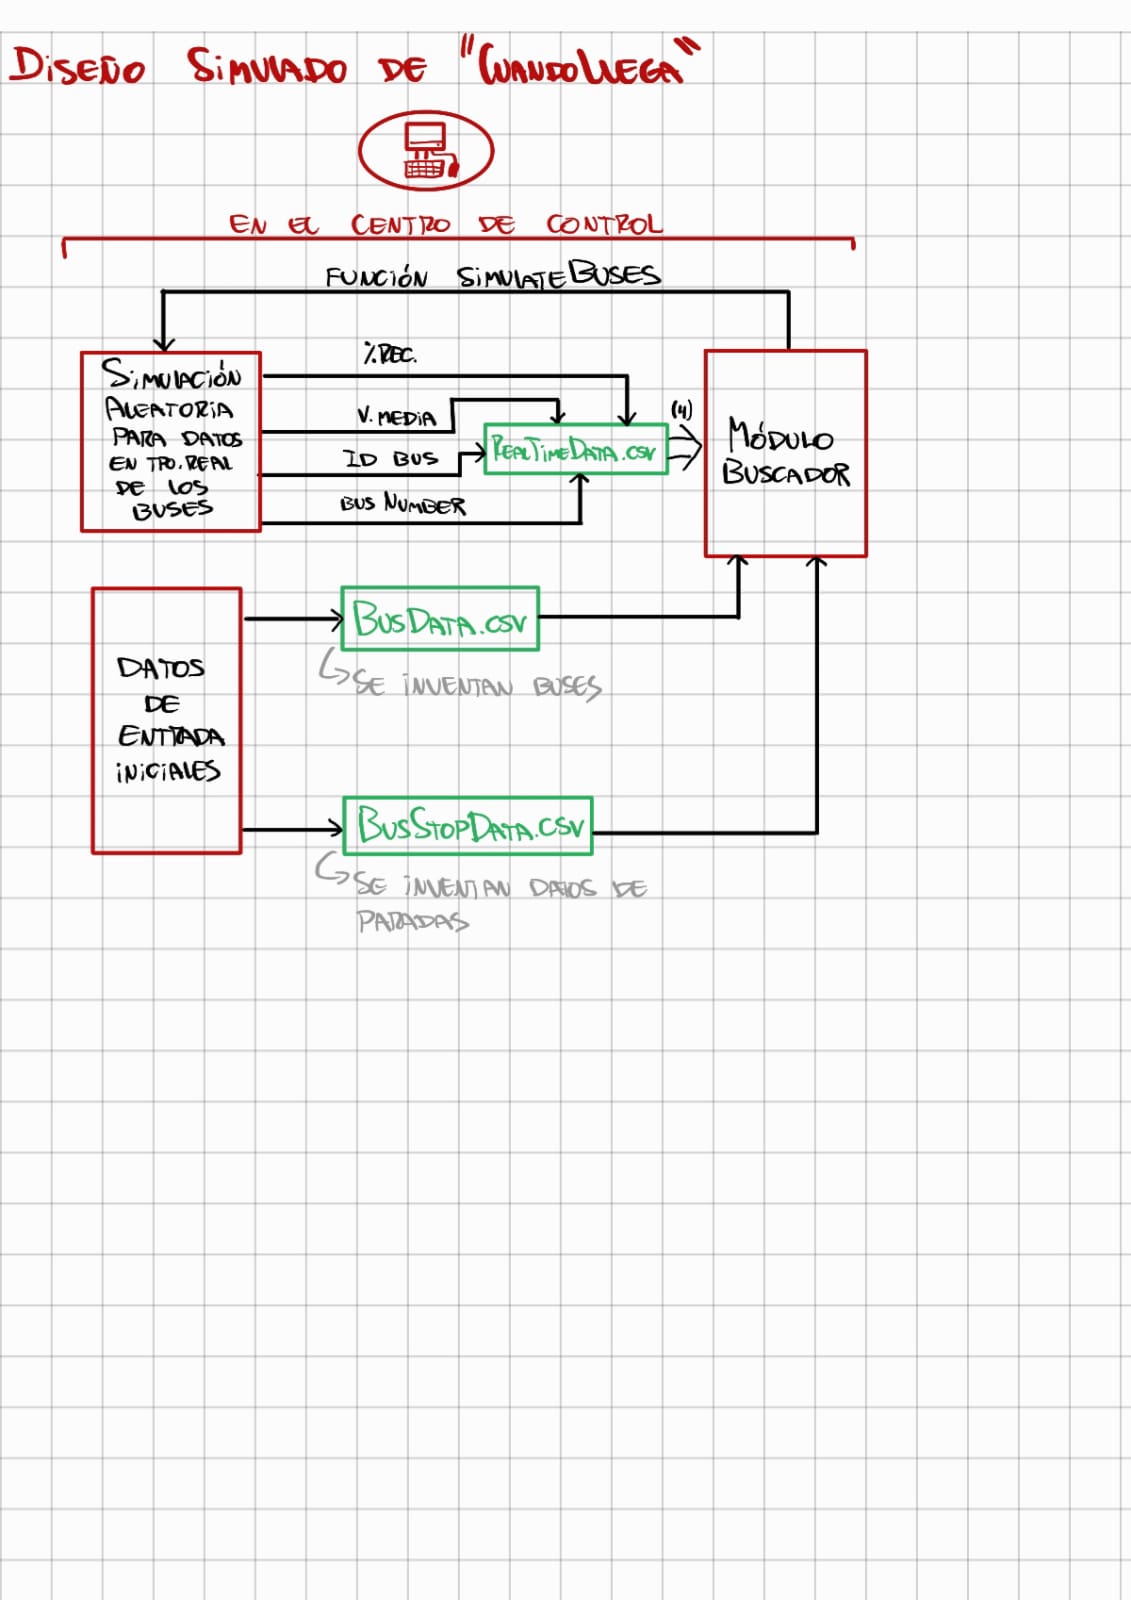 DiSEÑO SiMULADO DE "CUANDOLLEGA"
EN EL CENTRO DE CONTROL
FUNCIÓN SiMULATEBUSES
SiMULACIÓN
ALEATORiA
PARA DATOS
EN TPO.REAL
DE LOS
BUSES
%REC.
V. MEDiA
ID BUS
BUS NUMBER
REALTiMEDATA.CSV
(4)
MÓDULO
BUSCADOR
DATOS
DE
ENTRADA
iNiCiALES
BUSDATA.CSV
SE iNVENTAN BUSES
BUSSTOPDATA.CSV
SE iNVENTAN DATOS DE
PARADAS